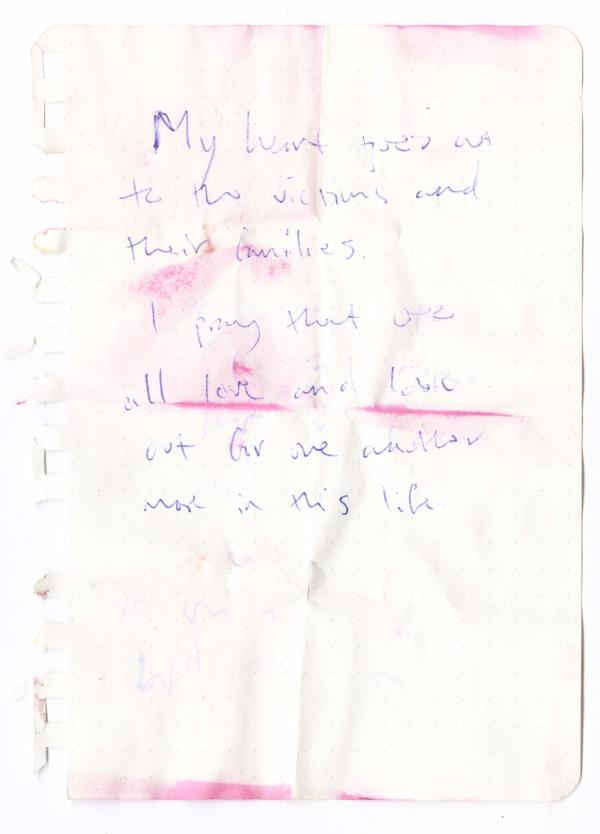 My heart goes out
to the victims and
their families.
I pray that we
all love and look
out for one another
more in this life